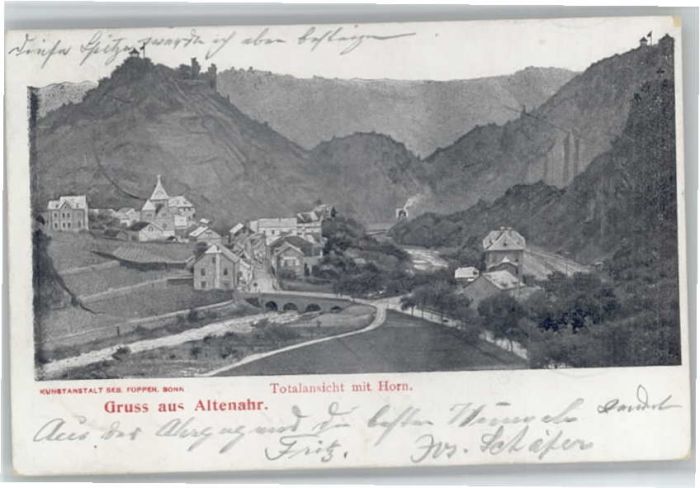 Diese Spitze werde ich aber besteigen
KUNSTANSTALT SEB. FOPPEN, BONN
Totalansicht mit Horn.
Gruss aus Altenahr.
Aus der Ahrgegend die besten Wünsche sendet
Fritz. Jos. Schäfer